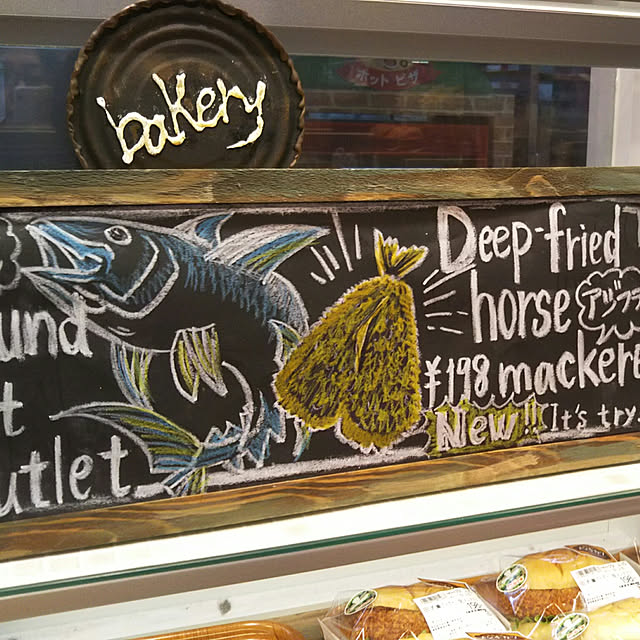 bakery
ホットピザ
Deep-fried
horse アジフラ
¥198 mackere
New!! (It's try.
und
t
utlet